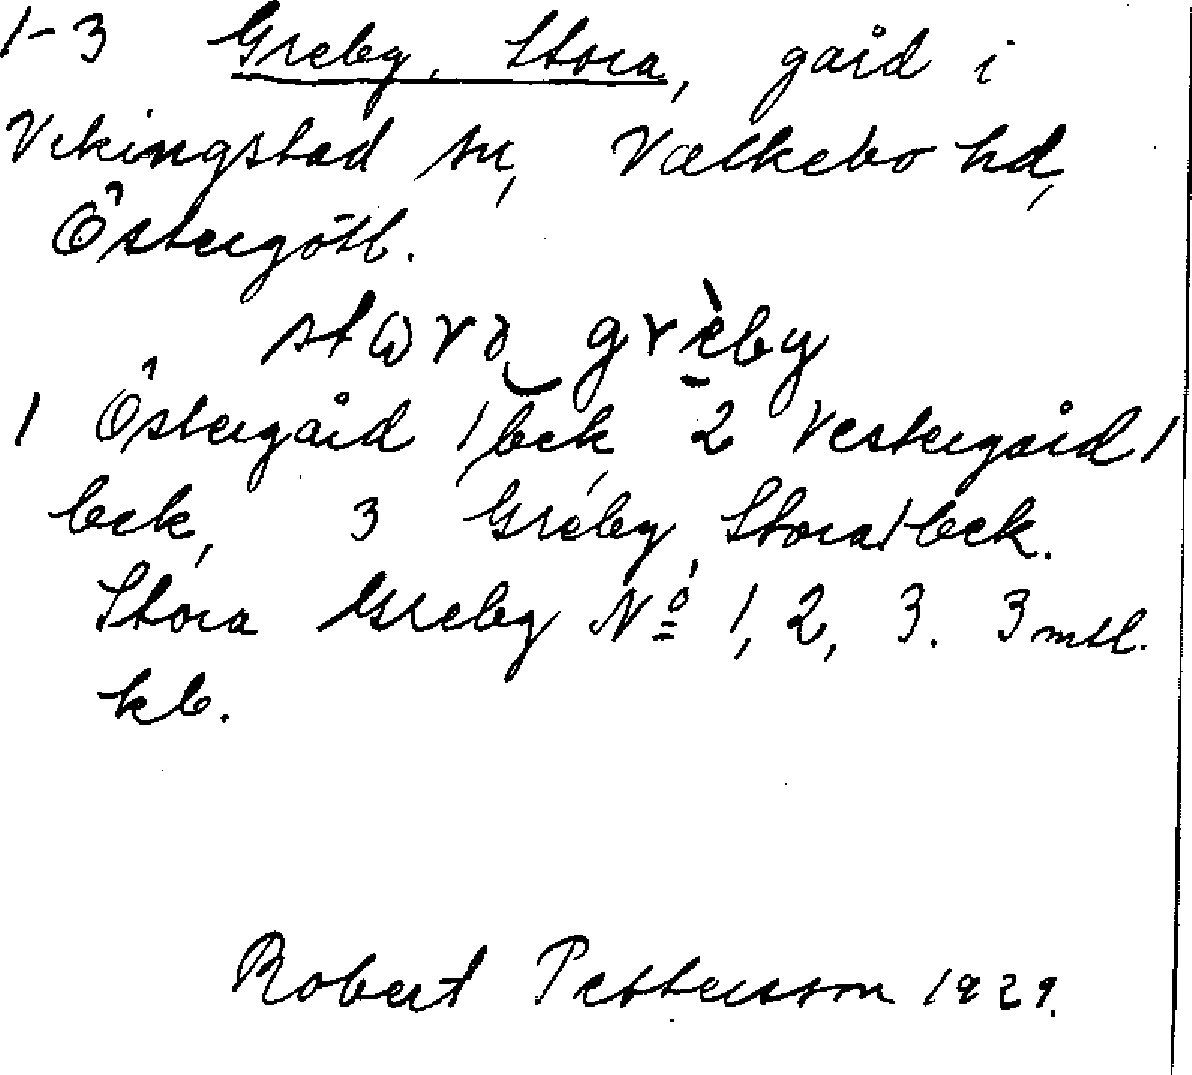 1-3 Greby, Stora, gård i
Vikingstad sn, Valkebo hd,
Östergötl.
stωra grèby
1 Östergård 1/bek, 2 Vestergård 1
bek, 3 Greby, Stora 1 bek.
Stora Greby Nº 1, 2, 3. 3 mtl.
kb.
Robert Pettersson 1929.